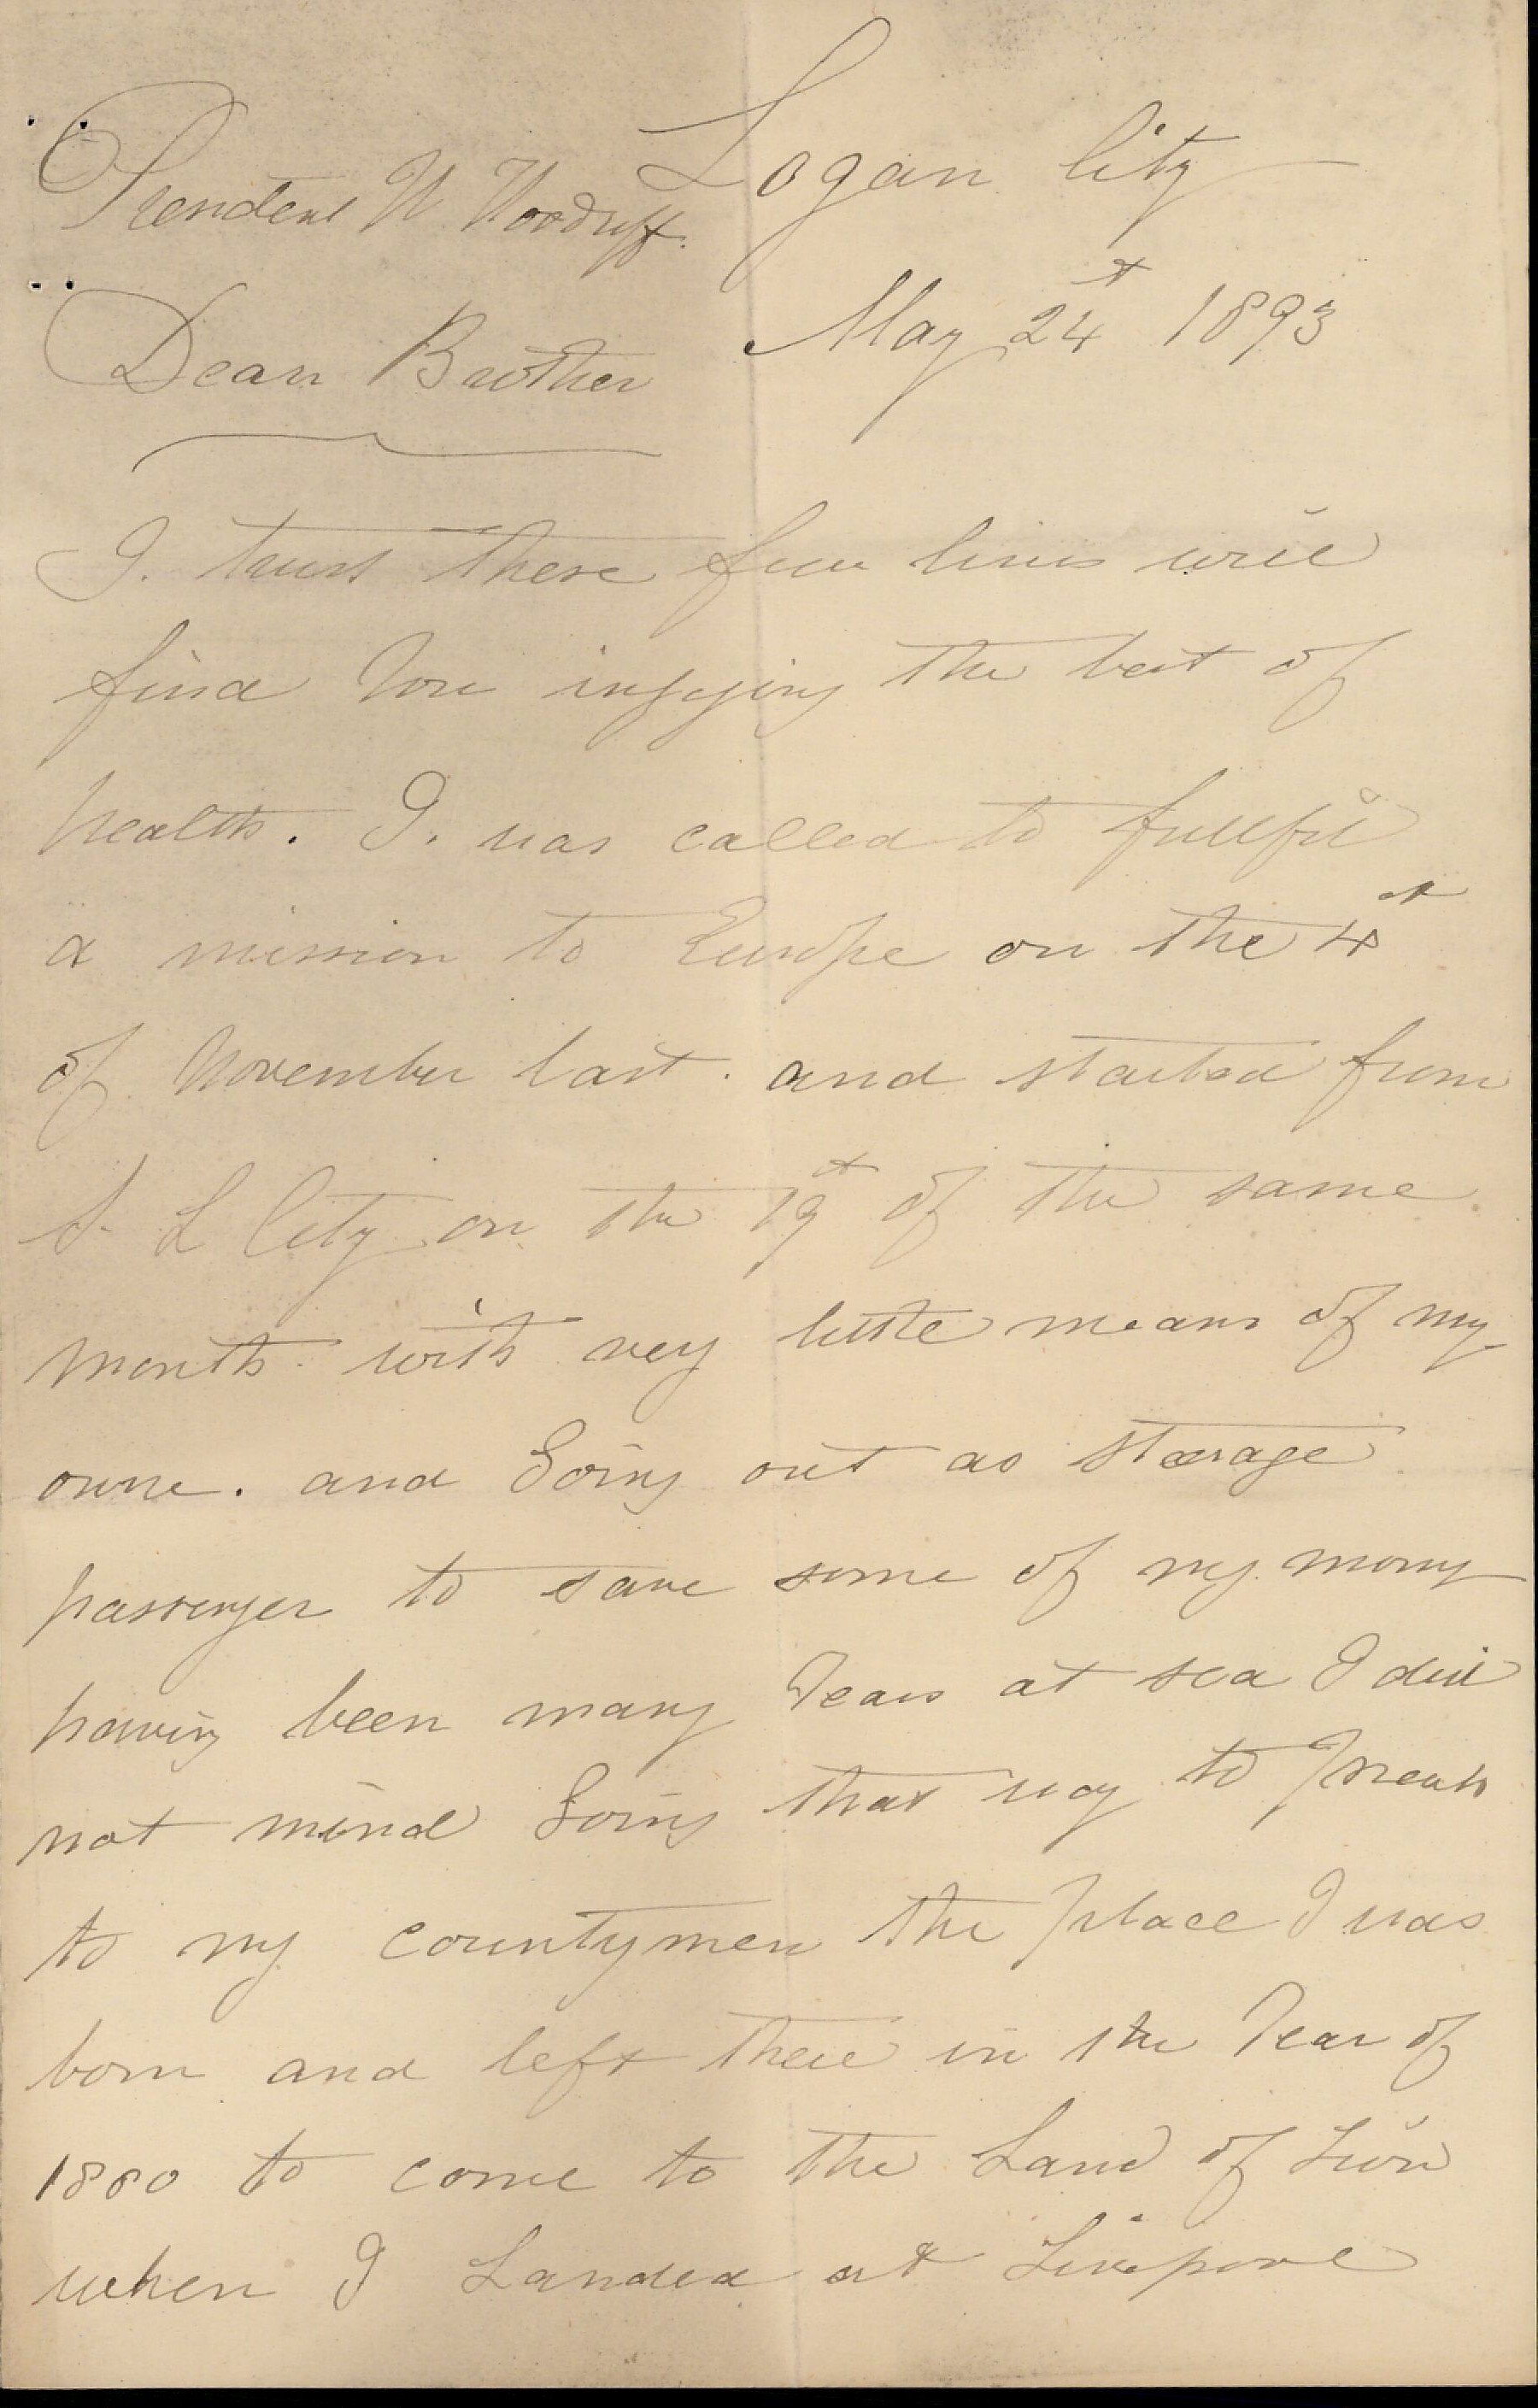 Logan City
President W Woodruff.
May 24th 1893
Dear Brother
I. trust these few lines will
find You injoying the best of
health. I. was called to fullfil
a mission to Europe on the 4th
of November last. and started from
S. L City on the 19th of the same
month. with very little means of my
owne. and Going out as stearage
passenger to save some of my mony
having been many Years at sea I did
not mind Going that way to Preach
to my countymen the place I was
born and left there in the Year of
1880 to come to the Land of Zion
when I Landed at Liverpool